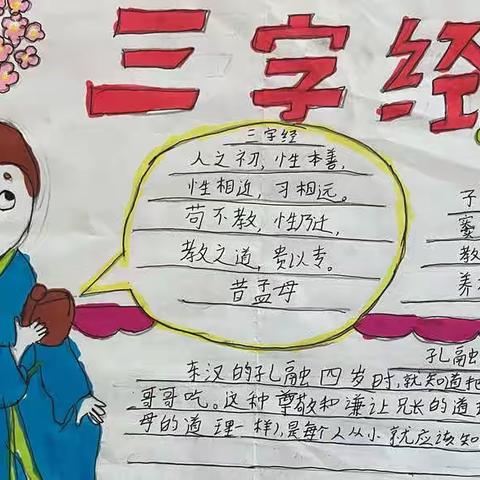 三字经
三字经
人之初,性本善,
性相近,习相远。
苟不教,性乃迁,
教之道,贵以专。
昔孟母
子
教
养
孔融
东汉的孔融四岁时,就知道把
哥哥吃。这种尊敬和谦让兄长的道
母的道理一样),是每个人从小就应该知